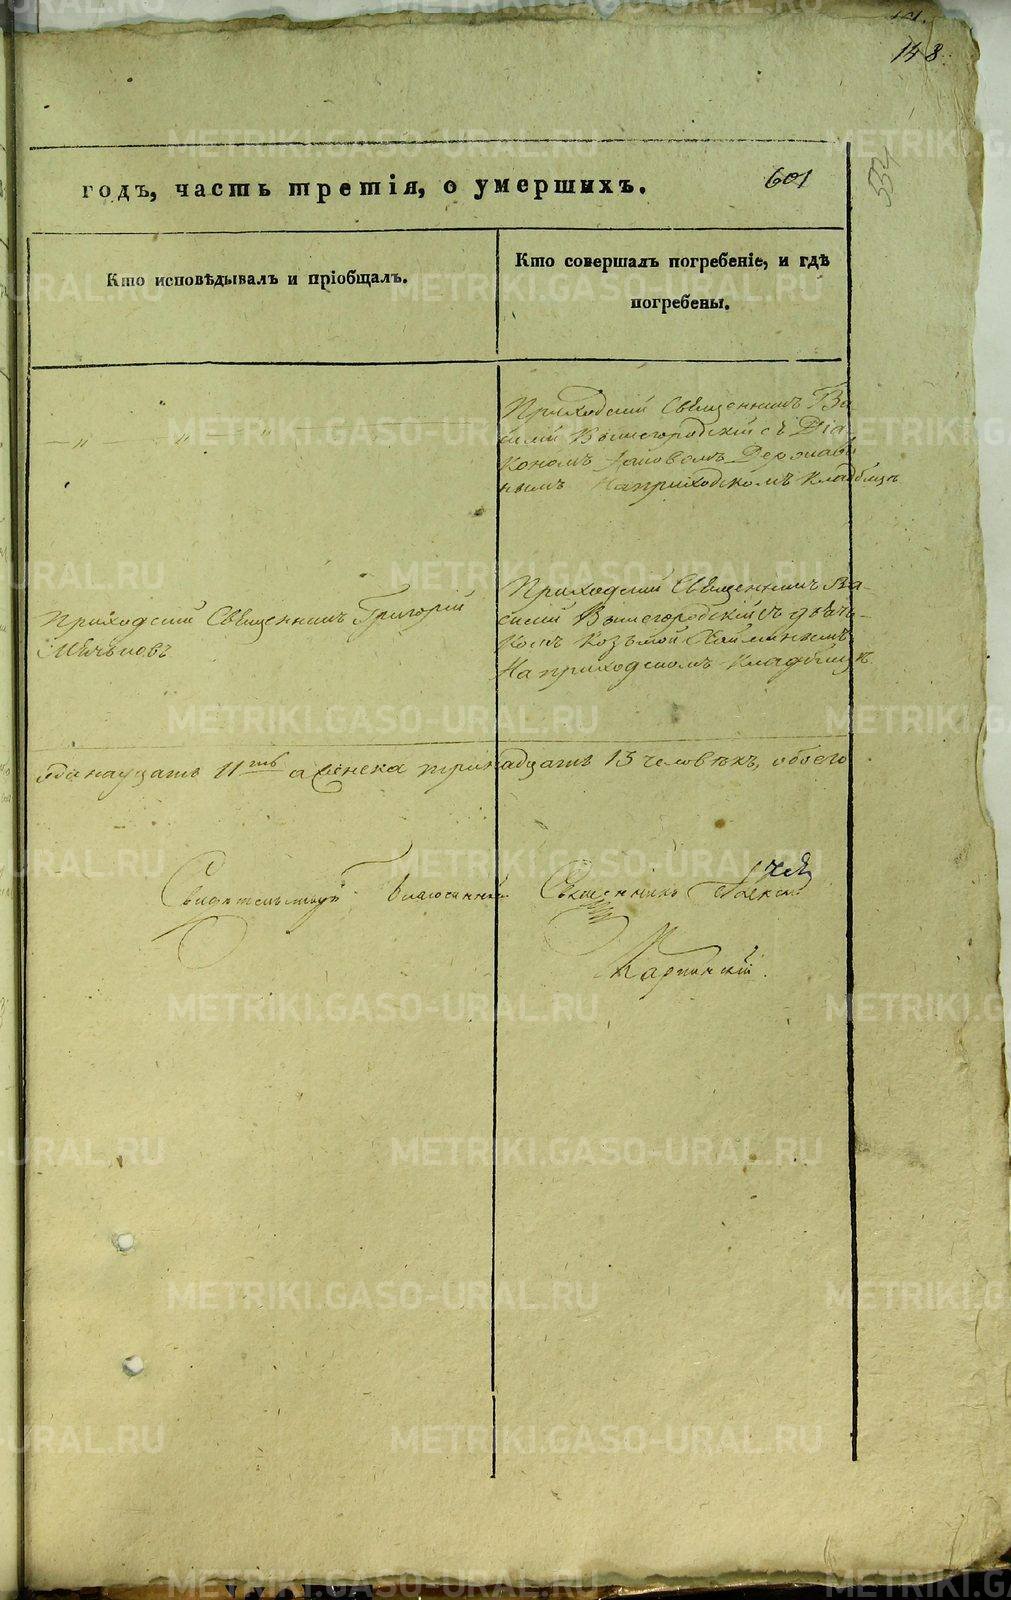 148.
554
годъ, часть третія, о умершихъ. 601
Кто исповѣдывалъ и пріобщалъ.
Кто совершалъ погребеніе, и гдѣ
погребены.
— „ — „ — „ —
Приходскій Священникъ Ва-
силій Вышегородскій съ Діа-
кономъ Державинымъ
на приходскомъ кладбищѣ
Приходскій Священникъ Григорій
Мѣльновъ
Приходскій Священникъ Ва-
силій Вышегородскій съ дьяч-
комъ Козьмой
На приходскомъ кладбищѣ
одинадцать 11ть а женска тринадцать 13 человѣкъ, обоего
Свидетельствую Благочинный Священникъ Алексій
Карпинскій.
METRIKI.GASO-URAL.RU